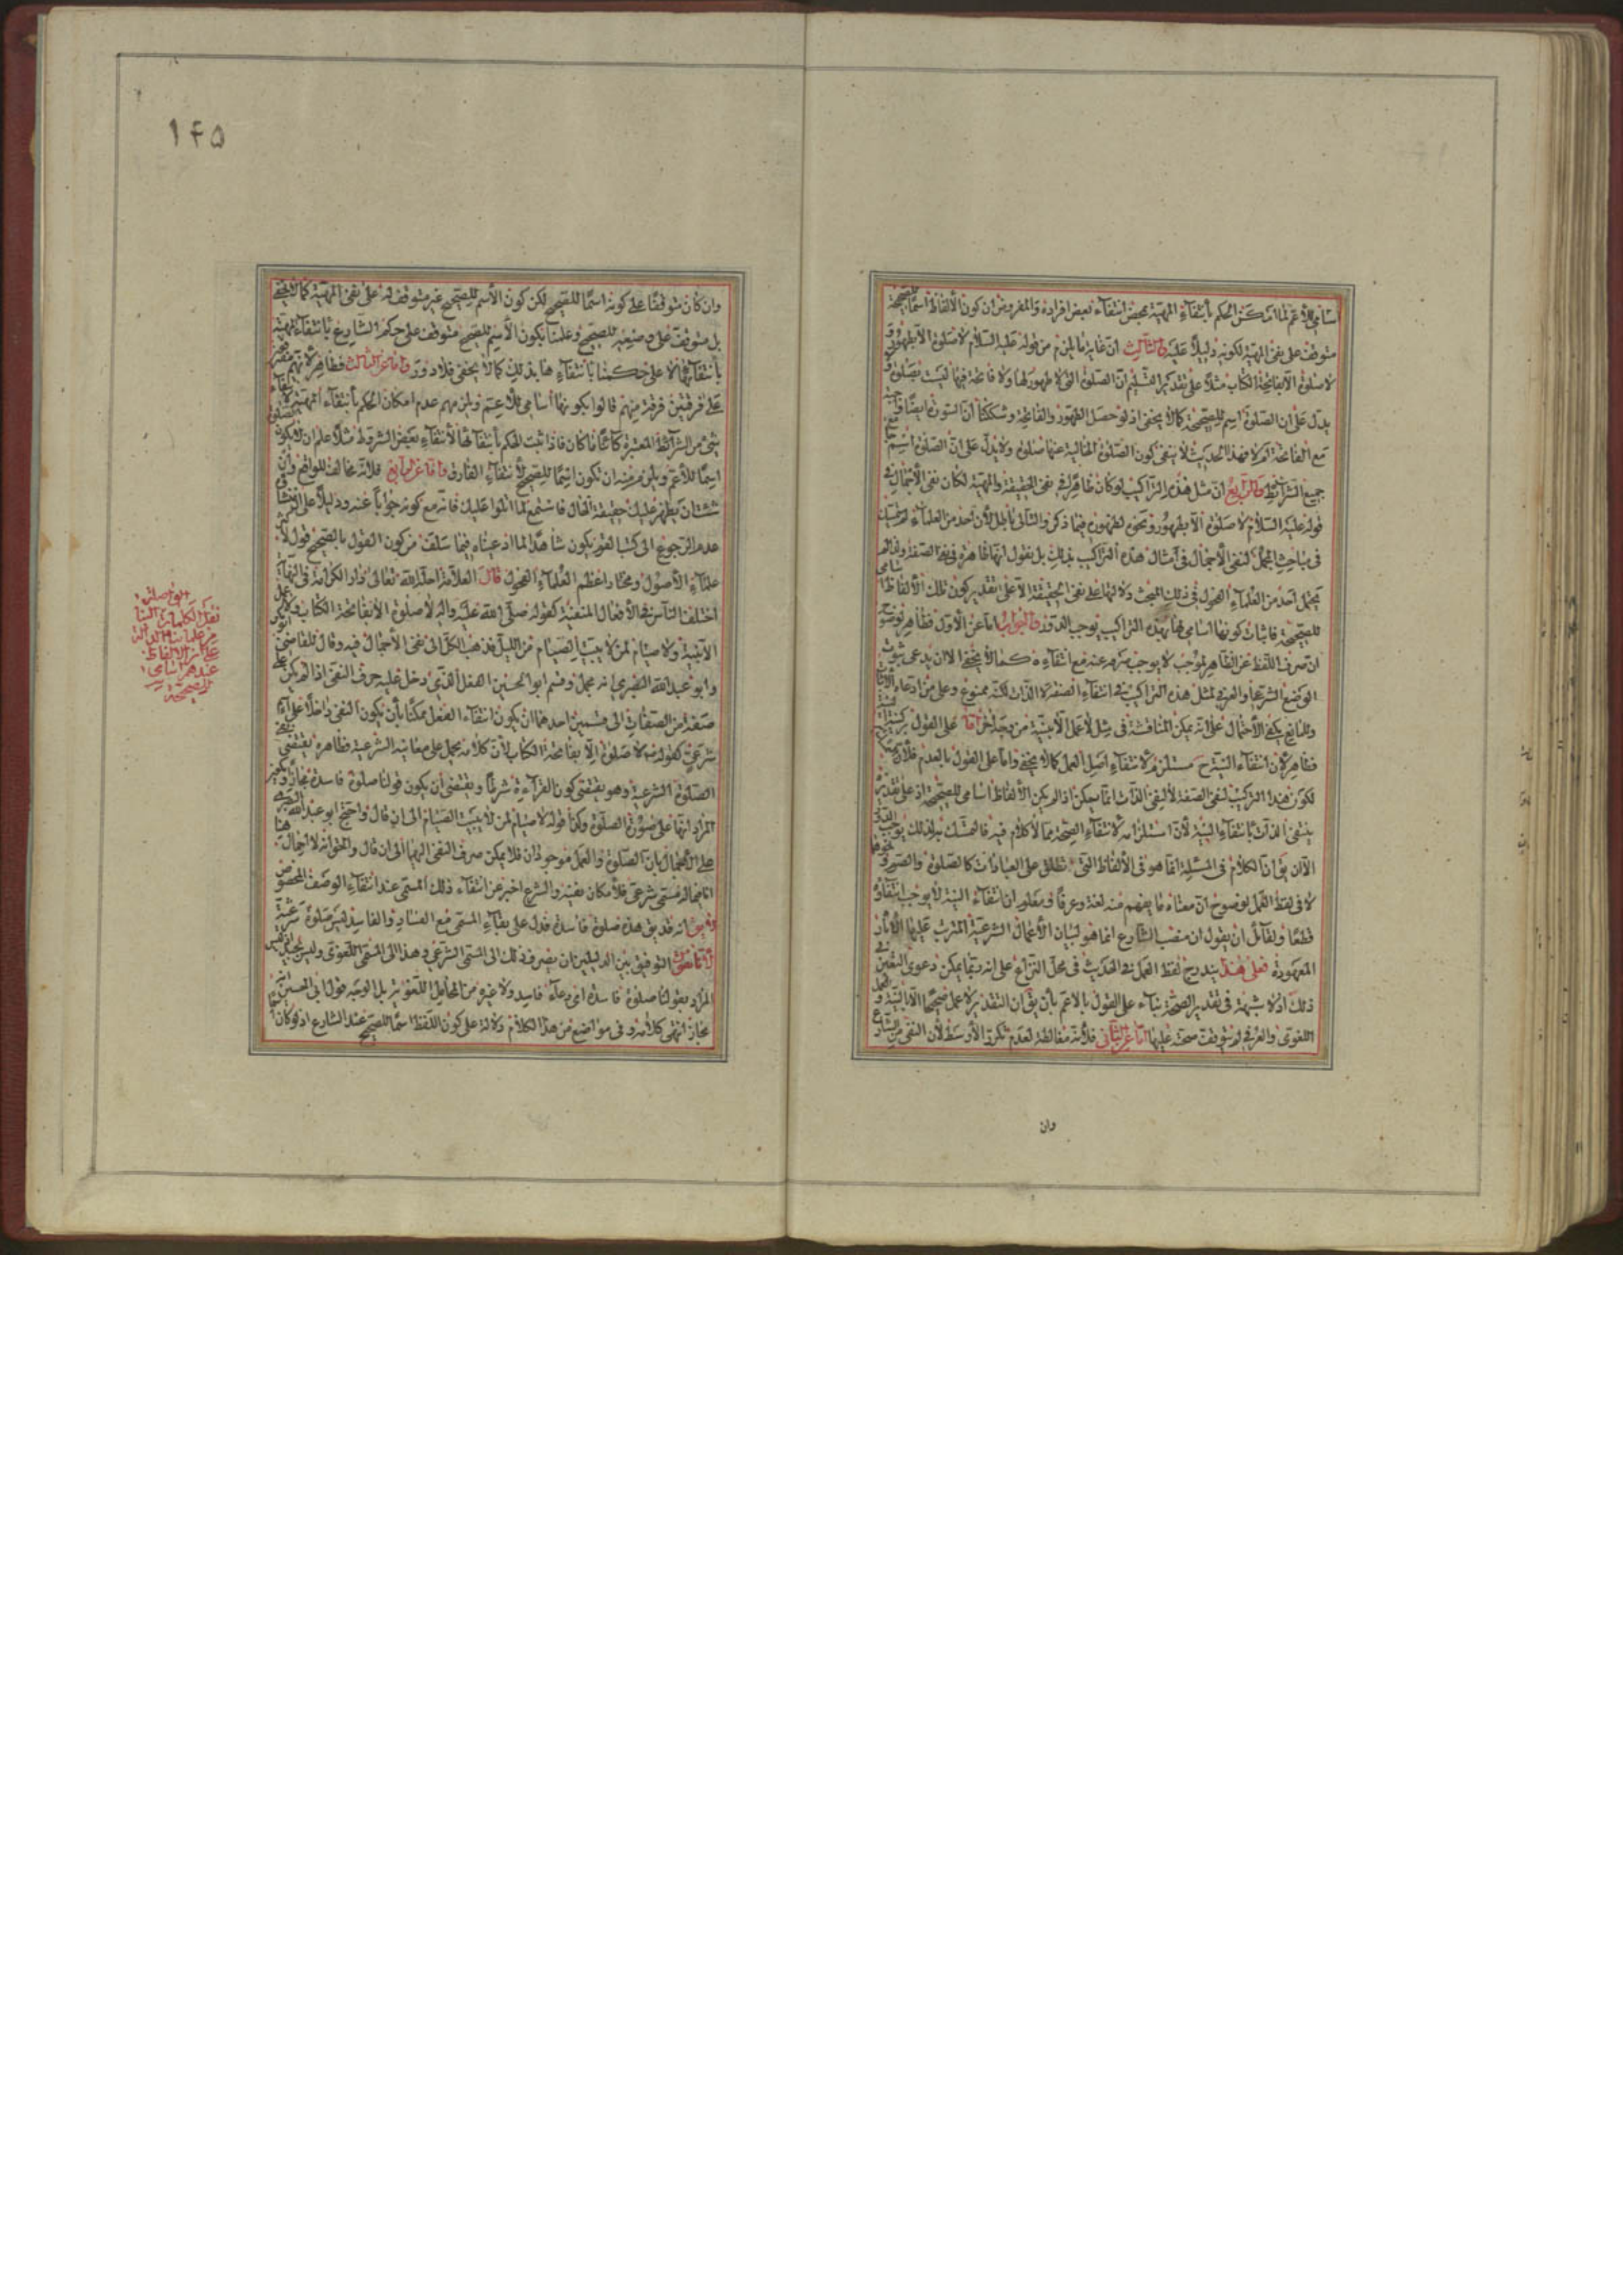 اسامي للأعم لما امكن الحكم بأنتفاء المهية بمحض انتفاء بعض افراده والمفروض ان كون الألفاظ اسما للصحيحة
متوقف على نفى المهية لكونه دليلا عليه والثالث ان غاية ما يلزم من قوله عليه السلام لا صلوة الا بطهور و
لا صلوة الا بفاتحة الكتاب مثلا على تقدير التسليم ان الصلوة التى لا طهور لها ولا فاتحة فيها ليست بصلوة و
يدل على ان الصلوة اسم للصحيحة كما لا يخفى اذ لو حصل الطهور والفاتحة وشككنا ان السورة ايضا واجبة
مع الفاتحة ام لا فهذا الحديث لا ينفى كون الصلوة الخالية عنها صلوة ولا يدل على ان الصلوة اسم
جميع الشرائط والرابع ان مثل هذه التراكيب لو كان ظاهرا فى نفى الحقيقة والمهية لكان نفى الأجمال فى
قوله عليه السلام لا صلوة الا بطهور ونحوه لظهوره فيما ذكر والتالى باطل لأن احد من العلماء لم يتمسك
فى مباحث المجمل لنفى الأجمال فى امثال هذه التراكيب بذلك بل يقول انها ظاهرة فى نفى الصفة
يحمل احد من العلماء الفحول فى ذلك المبحث دلالتها على نفى الحقيقة الا على تقدير كون تلك الألفاظ اسامي
للصحيحة فاثبات كونها اسامي لها بهذه التراكيب يوجب الدور والجواب اما عن الأول فظاهر
ان صرف اللفظ عن الظاهر لموجب لا يوجب صرفه عنه مع انتفاءه كما لا يخفى الا ان يدعى ثبوت
الوضع الشرعى او العرفى لمثل هذه التراكيب فى انتفاء الصفة لا الذات لكنه ممنوع وعلى من ادعاه الأثبات
وللمانع يكفى الأحتمال على انه يمكن المناقشة فى مثل لا عمل الا بنية من وجه اخر اما على القول
فظاهر لأن انتفاء النية ح مستلزم لأنتفاء اصل العمل كما لا يخفى واما على القول بالعدم فلأن
لكون هذا التركيب لنفى الصفة لا لنفى الذات انما يمكن اذا لم يكن الألفاظ اسامي للصحيحة اذ على تقديره
ينتفى الذات بانتفاء النية لأن استلزامه لأنتفاء الصحة مما لا كلام فيه فالتمسك بذلك يوجب الدور
الا ان يق ان الكلام فى المسئلة انما هو فى الألفاظ التى تطلق على العبادات كالصلوة والصوم ونحوهما
لا فى لفظ العمل لوضوح ان معناه ما يفهم منه لغة وعرفا ومعلوم ان انتفاء النية لا يوجب انتفاؤه
قطعا ولقائل ان يقول ان منصب الشارع انما هو لبيان الأعمال الشرعية المترتب عليها الأثار
المعهودة فعلى هذا يندرج لفظ العمل فى الحديث فى محل النزاع على انه ربما يمكن دعوى اليقين فى
ذلك اذ لا شبهة فى تقدير الصحة بناء على القول بالأعم بأن يق ان التقدير لا عمل صحيحا الا بالنية و
اللغوى والعرفى لم يتوقف صحته عليها اما عن الثانى فلأنه مغالطة لعدم تكرر الأوسط لأن النفى من الشارع
وان
۱۴۵
وان كان متوقفا على كونه اسما للصحيح لكن كون الأسم للصحيح غير متوقف له على نفى المهية كما لا يخفى
بل متوقف على وضعه للصحيح وعلمنا بكون الأسم للصحيح متوقف على حكم الشارع بأنتفاء المهية
بأنتفائها لا على حكمنا بأنتفاءها بذلك كما لا يخفى فلا دور واما عن الثالث فظاهر لأنهم
على فرقتين فرقة منهم قالوا بكونها اسامي للأعم ويلزمهم عدم امكان الحكم بأنتفاء المهية
شىء من الشرائط المعتبرة كائنا ما كان فاذا ثبت الحكم بأنتفائها لأنتفاء بعض الشروط مثلا علم ان
اسما للأعم ويلزم منه ان تكون اسما للصحيح لأنتفاء الفارق واما عن الرابع فلانه مخالف للواقع وان
شئت ان يظهر عليك حقيقة الحال فاستمع لما اتلوا عليك فانه مع كونه جوابا عنه ودليلا على
عدم الرجوع الى كتب القوم يكون شاهدا لما ادعيناه فيما سلف من كون القول بالصحيح قول لأكثر
علماء الأصول ومختار اعظم العلماء الفحول قال العلامة احله الله تعالى دار الكرامة فى النهاية
اختلف الناس فى الأفعال المنفية كقوله صلى الله عليه واله لا صلوة الا بفاتحة الكتاب ولا عمل
الا بنية ولا صيام لمن لا يبيت الصيام من الليل فذهب الكل الى نفى الأجمال فيه وقال القاضى
وابو عبد الله البصرى انه مجمل وقسم ابو الحسين الفعل الذى دخل عليه حرف النفى اذا لم يكن على
صفة من الصفات الى قسمين احدهما ان يكون انتفاء الفعل ممكنا بأن يكون النفى داخلا على
شرعى كقوله لا صلوة الا بفاتحة الكتاب لأن كلامه يحمل على معانيه الشرعية فظاهره يقتضى نفى
الصلوة الشرعية وهو يقتضى كون القراءة شرطا ويقتضى ان يكون قولنا صلوة فاسدة مجازا ويكون
المراد انها على صورة الصلوة وكذا قوله لا صيام لمن لا يبيت الصيام الى ان قال واحتج ابو عبد الله البصرى
على الأجمال بأن الصلوة والعمل موجودان فلا يمكن صرف النفى اليهما الى ان قال والحق انه لا اجمال هنا
اما فيما له مسمى شرعى فلأمكان نفيه والشرع اخبر عن انتفاء ذلك المسمى عند انتفاء الوصف المخصوص
وقيق انه قد يق هذه صلوة فاسدة فدل على بقاء المسمى مع الفساد والفاسد ليس صلوة شرعية
لأنا نقول التوفيق بين الدليلين ان يصرف ذلك الى المسمى الشرعى وهذا الى المسمى اللغوى وليس بجيد
المراد بقولنا صلوة فاسدة اى دعاء فاسد ولا غيره من المحامل اللغوية بل الوجه قول ابى الحسين
مجاز انتهى كلامه وفى مواضع من هذا الكلام دلالة على كون اللفظ اسما للصحيح عند الشارع اذ لو كان
نقل الكلمات
من علمائنا الدالة
على ان الألفاظ
عندهم اسامي
للصحيحة